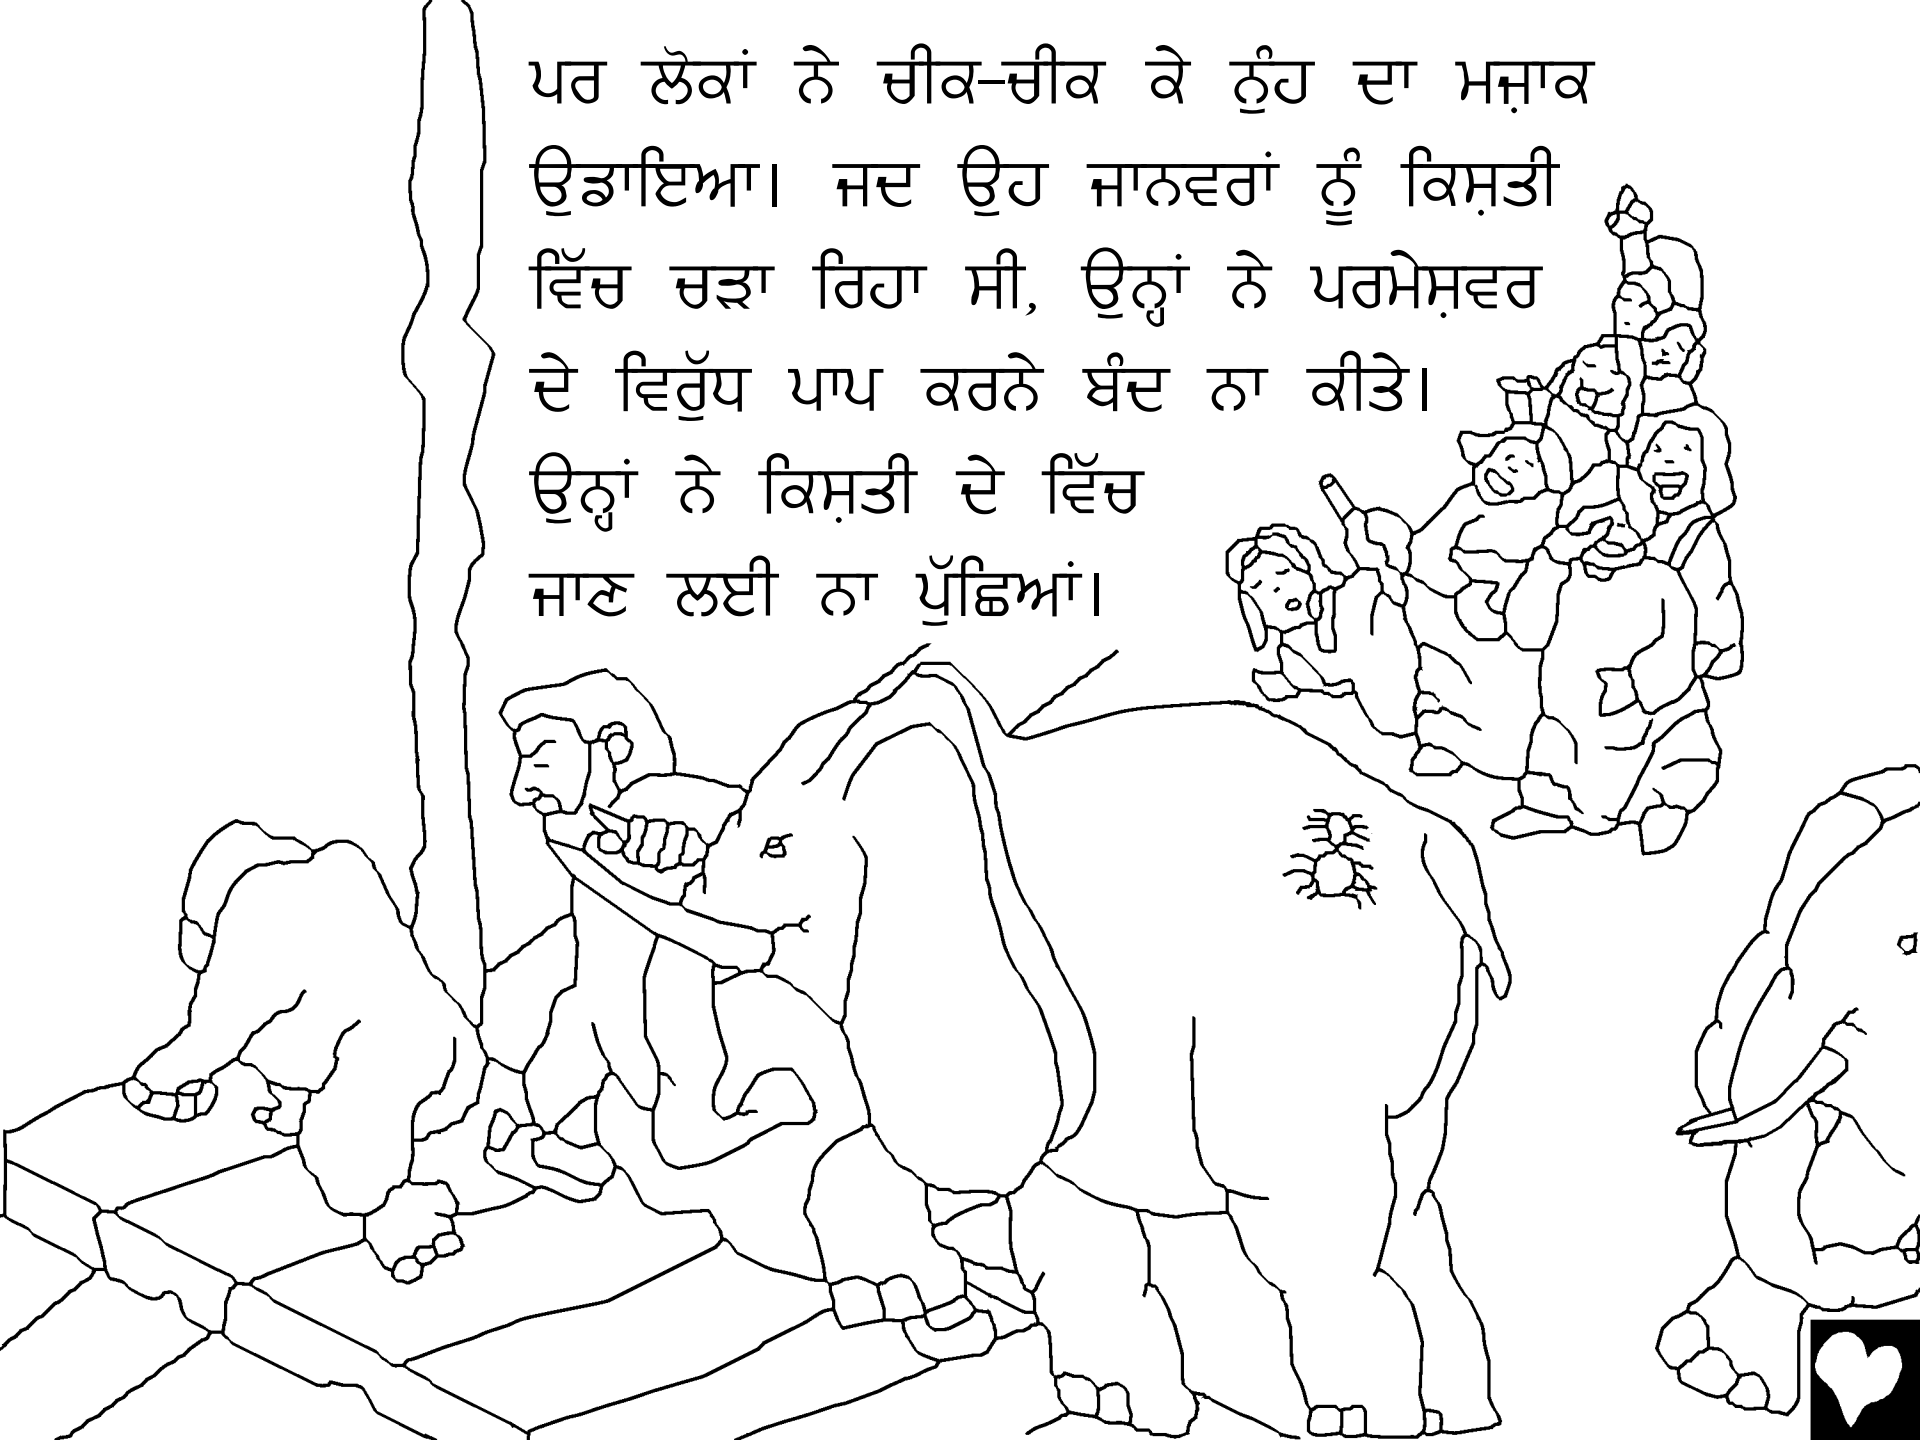 ਪਰ ਲੋਕਾਂ ਨੇ ਚੀਕ-ਚੀਕ ਕੇ ਨੁੰਹ ਦਾ ਮਜ਼ਾਕ
ਉਡਾਇਆ। ਜਦ ਉਹ ਜਾਨਵਰਾਂ ਨੂੰ ਕਿਸ਼ਤੀ
ਵਿੱਚ ਚੜਾ ਰਿਹਾ ਸੀ, ਉਨ੍ਹਾਂ ਨੇ ਪਰਮੇਸ਼ਵਰ
ਦੇ ਵਿਰੁੱਧ ਪਾਪ ਕਰਨੇ ਬੰਦ ਨਾ ਕੀਤੇ।
ਉਨ੍ਹਾਂ ਨੇ ਕਿਸ਼ਤੀ ਦੇ ਵਿੱਚ
ਜਾਣ ਲਈ ਨਾ ਪੁੱਛਿਆਂ।